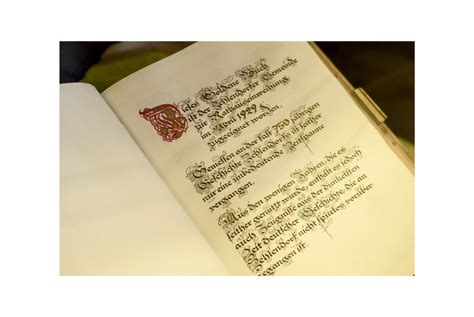 Dieses Goldene Buch
ist der Zehlendorfer Gemeinde
zur Rathauseinweihung
im April 1929
zugeeignet worden.
Gemessen an der fast 750 jährigen
Geschichte Zehlendorfs ist seither
nur eine unbedeutende Zeitspanne
vergangen.
Aus den wenigen Jahren, die es
seither genutzt wurde, enthält es jedoch
auch Zeugnisse aus der dunkelsten
Zeit deutscher Geschichte, die an
Zehlendorf nicht spurlos vorüber
gegangen ist.